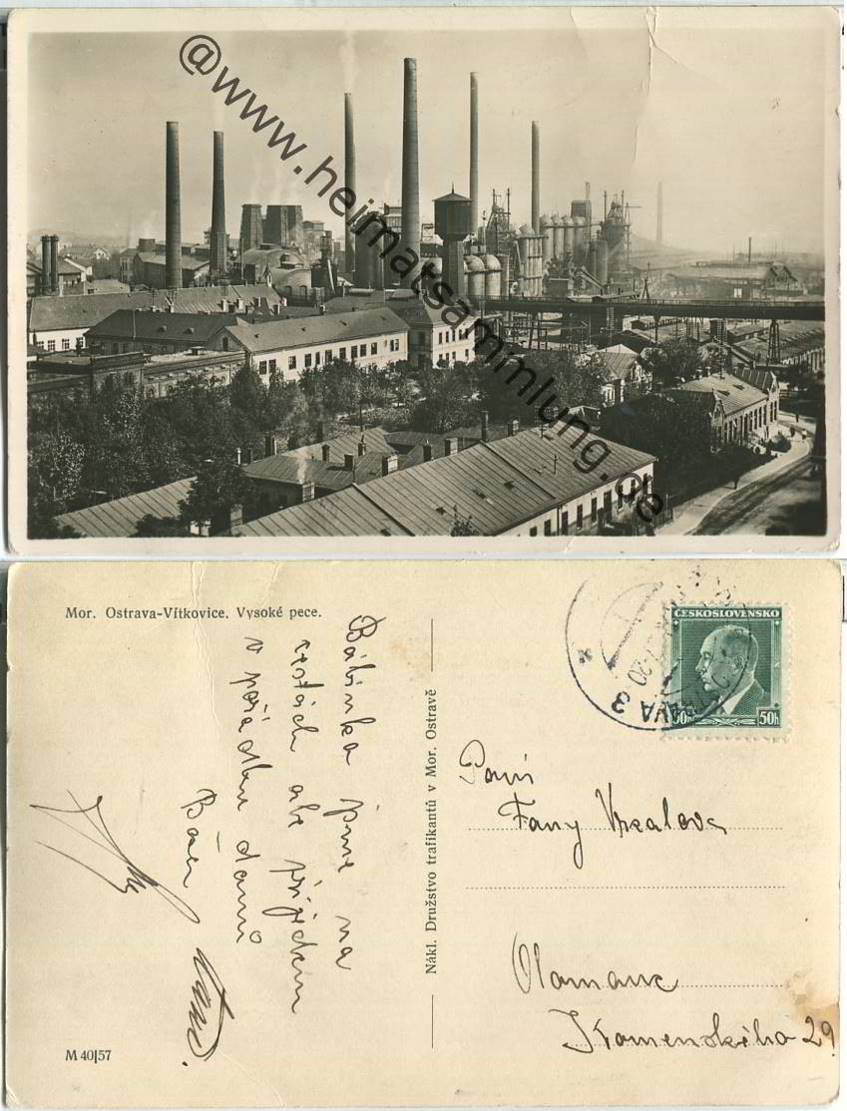 @www.heimatsammlung.de
Mor. Ostrava-Vítkovice. Vysoké pece.
Bábinka jsme na
cestách ale přijedem
v pořádku domů
Nákl. Družstvo trafikantů v Mor. Ostravě
ČESKOSLOVENSKO
50h 50h
AVA 3
Paní
Fany
Olomouc
Komenského 29
M 40|57